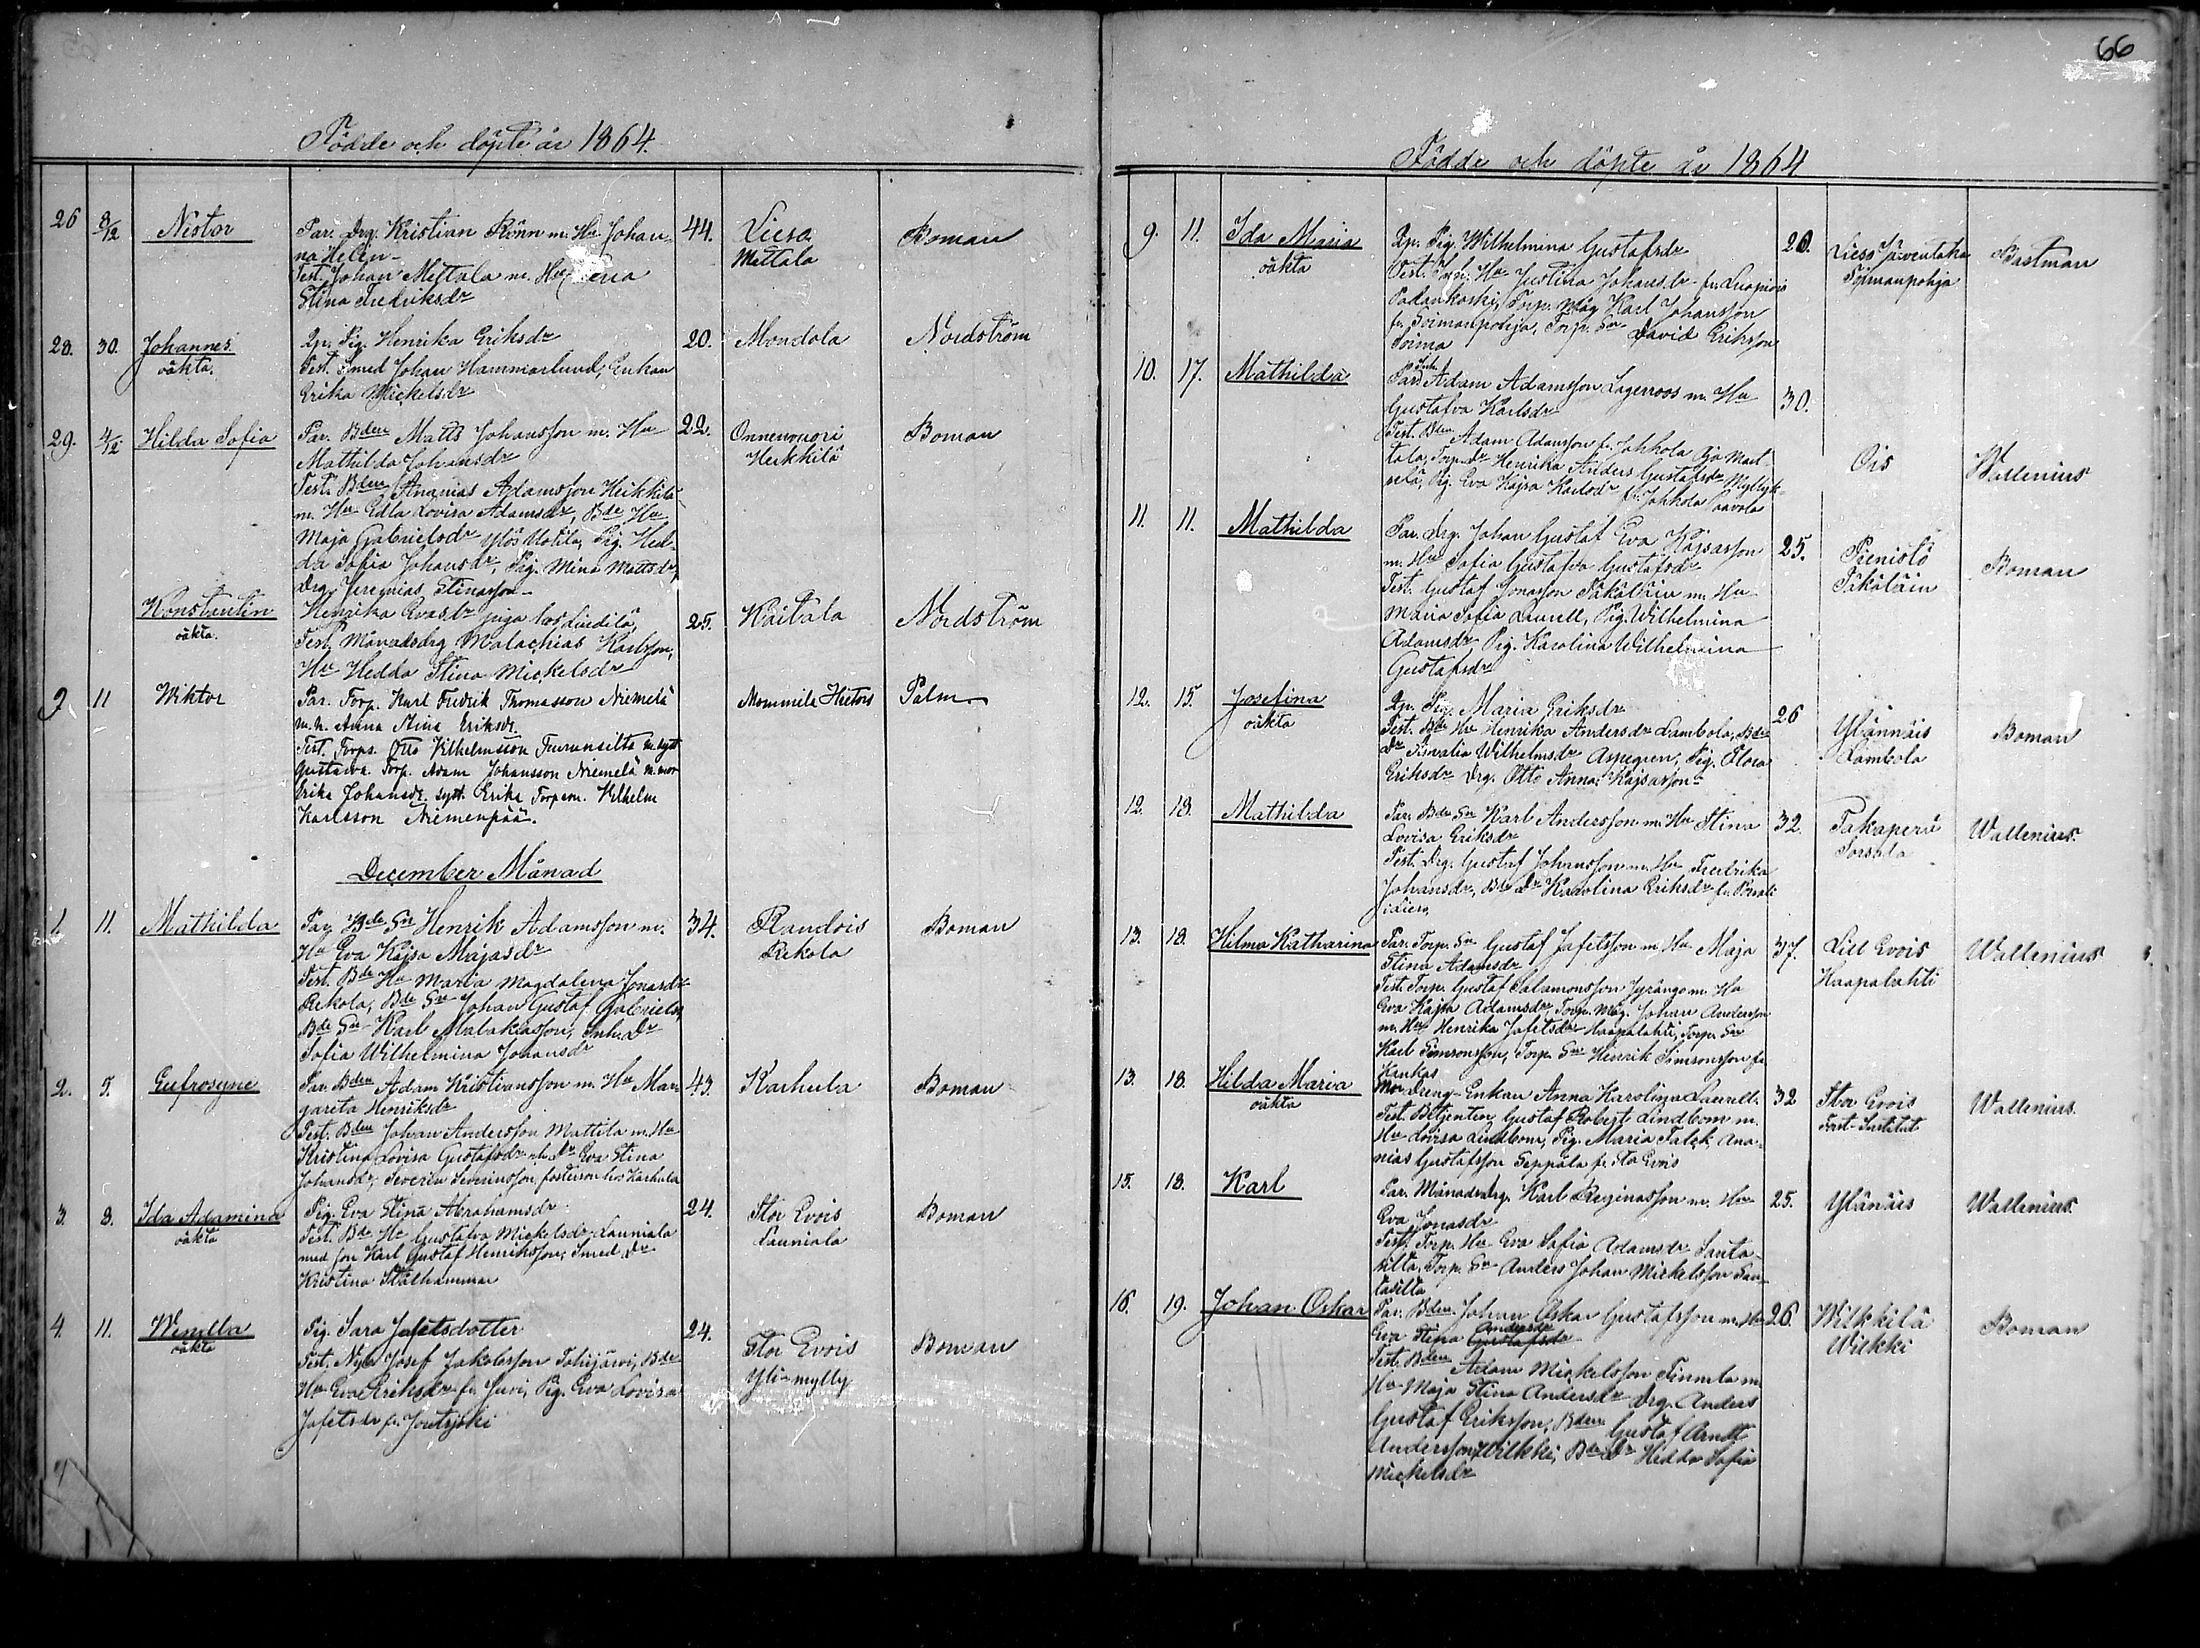 66
Födde och döpte år 1864.
26 8/12 Nestor
Par. Drg. Kristian Rönn m. Hu Johan-
na Helén
Test. Johan Mettala m. Hu
Stina Fredriksdr
44. Liesa
Mettala
Boman
28. 30. Johannes
oäkta.
Qp. Pig. Henrika Eriksdr
Test. Smed Johan Hammarlund, Enkan
Erika Mickelsdr
20. Mondola
Nordström
29. 4/12 Hilda Sofia
Par. Bden Matts Johansson m. Hu
Mathilda Johansdr
Test. Bden Ananias Adamsson Heikkilä
m. Hu Edla Lovisa Adamsdr, Bde Hu
Maja Gabrielsdr Ylös Uotila, Pig. Hed-
da Sofia Johansdr, Pig. Mina Mattsdr,
Drg. Jeremias Stinasson
22. Onnenvuori
Heikkilä
Boman
Konstantin
oäkta.
Henrika Evasdr piga hos
Test. Månadsdrg Malachias Karlsson,
Hu Hedda Stina Mickelsdr
25. Kaitala
Nordström
9 11 Wiktor
Par. Torp. Karl Fredrik Thomasson Niemelä
m. h. Anna Stina Eriksdr.
Test. Torps. Otto Vilhelmsson Turransilta m. syst
Gustava. Torp. Adam Johansson Niemelä m. mor
Erika Johansdr. syst. Erika Torpson. Vilhelm
Karlsson Niemenpää.
Mommila Hietois
Palm
December Månad
1. 11. Mathilda
Par. Bde Sn Henrik Adamsson m.
Hu Eva Kajsa Majasdr
Test. Bde Hu Maria Magdalena Jonasdr
Rekola, Bde Sn Johan Gustaf Gabrielss,
Bde Sn Karl Malakiasson, Inh. Dr
Sofia Wilhelmina Johansdr
34. Randois
Rekola
Boman
2. 5. Eufrosyne
Par. Bden Adam Kristiansson m. Hu Mar-
gareta Henriksdr
Test. Bden Johan Andersson Mattila m. Hu
Kristina Lovisa Gustafsdr o. Dr Eva Stina
Johansdr, Severin Severinsson, fosterson hos Karhula
43. Karhula
Boman
3. 8. Ida Adamina
oäkta
Pig. Eva Stina Abrahamsdr
Test. Bde Hu Gustafva Mickelsdr Launiala
med son Karl Gustaf Henriksson, Smed Dr
Kristina Stålhammar
24. Stor Evois
Launiala
Boman
4. 11. Wendla
oäkta
Pig. Sara Jafetsdotter
Test. Nyb. Josef Jakobsson Tohijärvi, Bde
Hu Eva Eriksdr fr. Suvi, Pig. Eva Lovisa
Jafetsdr fr. Joutjoki
24. Stor Evois
Yli-mylly
Boman
Födde och döpte år 1864
9. 11. Ida Maria
oäkta
Qp. Pig. Wilhelmina Gustafsdr
Test. Torp. Hu Justina Johansdr fr.
Padankoski, Torp. Måg Karl Johansson
fr. Soimanpohja, Torp. Sn David Eriksson
Soima
20. Lieso Järventaka
Boman
10. 17. Mathilda
Par. Inh. Adam Adamsson Lagerroos m. Hu
Gustafva Karlsdr
Test. Bden Adam Adamsson fr. Jahkola
Torp. Dr Henrika Anders Gustafsdr Myllyk-
Pig. Eva Kajsa Karlsdr fr. Jahkola Paavola
30.
Ois
Wallenius
11. 11. Mathilda
Par. Drg. Johan Gustaf Eva Kajsasson
m. Hu Sofia Gustafva Gustafsdr
Test. Gustaf Jonasson Päkäläin m. Hu
Maria Sofia Laurell, Pig. Wilhelmina
Adamsdr Pig. Karolina Wilhelmina
Gustafsdr
25. Pienistö
Päkäläin
Boman
12. 15. Josefina
oäkta
Qp. Pig. Maria Eriksdr
Test. Bde Hu Henrika Andersdr Lambola, Bde
Dr Amalia Wilhelmsdr Aspegren, Pig. Flora
Eriksdr Drg. Otto Anna Kajsasson
26 Ylännäis
Lambola
Boman
12. 18. Mathilda
Par. Bde Sn Karl Andersson m. Hu Stina
Lovisa Eriksdr
Test. Drg. Gustaf Johansson m. Hu Fredrika
Johansdr, Bde Dr Karolina Eriksdr fr.
i Lieso
32. Takaperä
Sorsala
Wallenius.
13. 18. Hilma Katharina
Par. Torp. Sn Gustaf Jafetsson m. Hu Maja
Stina Adamsdr
Test. Torp. Gustaf Salamonsson Jyrängö m. Hu
Eva Kajsa Adamsdr, Torp. Måg. Johan Andersson
m. Hu Henrika Jafetsdr Haapalahti, Torp. Sn
Karl Simsonsson, Torp. Sn Henrik Simsonsson fr.
Kankas
37. Lill Evois
Haapalahti
Wallenius
13. 18. Hilda Maria
oäkta
Mor Dreng-Enkan Anna Karolina Laurell.
Test. Betjenten Gustaf Robert Lindbom m.
Hu Lovisa Lindbom, Pig. Maria Falck, Ana-
nias Gustafsson Seppälä fr. Sta Evois
32 Stor Evois
Forst-Institut
Wallenius.
15. 18. Karl
Par. Månadsdrg. Karl Reginasson m. Hu
Eva Jonasdr
Test. Torp. Hu Eva Sofia Adamsdr Santa-
silta, Torp. Sn Anders Johan Mickelsson San-
tasilta
25. Ylänäis
Wallenius.
16. 19. Johan Oskar
Par. Bden Johan Oskar Gustafsson m. Hu
Eva Stina Andersdr Gustafsdr
Test. Bden Adam Mickelsson Finnila m.
Hu Maja Stina Andersdr Drg. Anders
Gustaf Eriksson, Bden Gustaf Arndt
Andersson Wilkki, Bde Dr Hedda Sofia
Mickelsdr
26. Wilkkilä
Wilkki
Boman